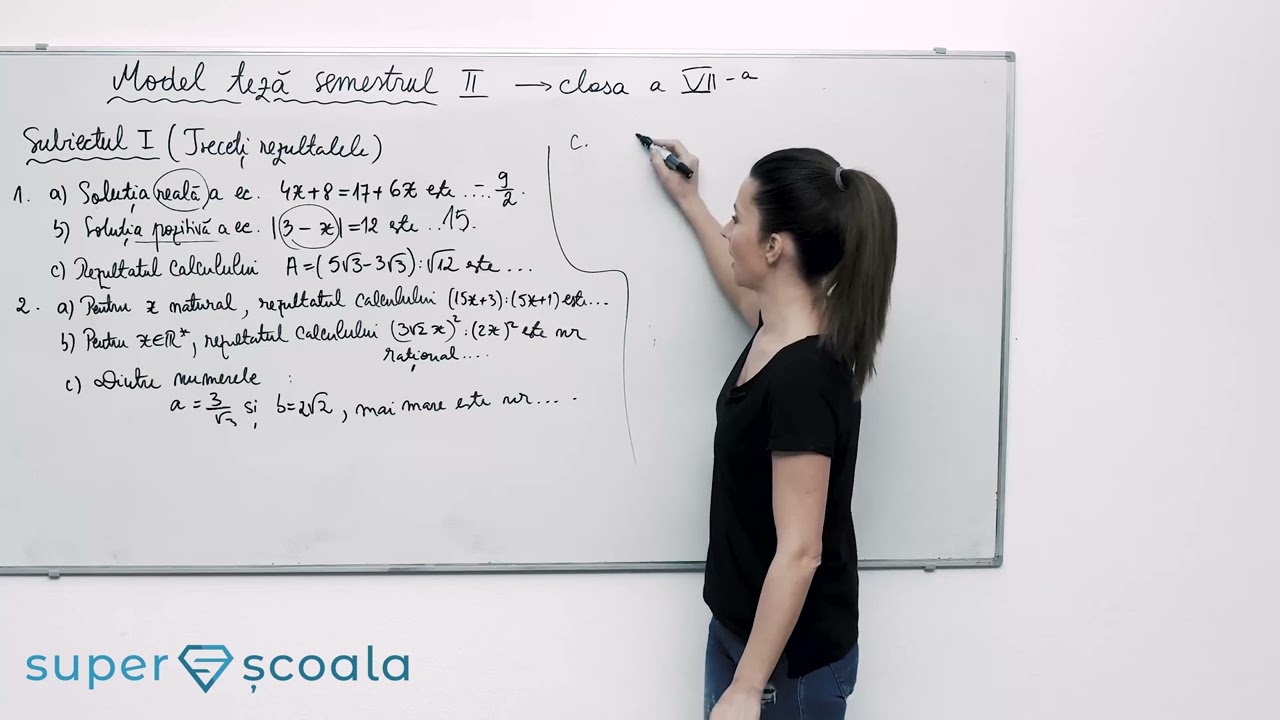 Model teză semestrul II → clasa a VII-a
Subiectul I (Treceți rezultatele)
1. a) Soluția reală a ec. 4x+8=17+6x este ...-9/2.
b) Soluția pozitivă a ec. |3-x|=12 este ..15.
c) Rezultatul calculului A=(5√3-3√3):√12 este ...
2. a) Pentru x natural, rezultatul calculului (15x+3):(5x+1) este...
b) Pentru x∈R*, rezultatul calculului (3√2x)²:(2x)² este nr
rațional....
c) Dintre numerele :
a=3/√3 și b=2√2, mai mare este nr....
c.
super școala